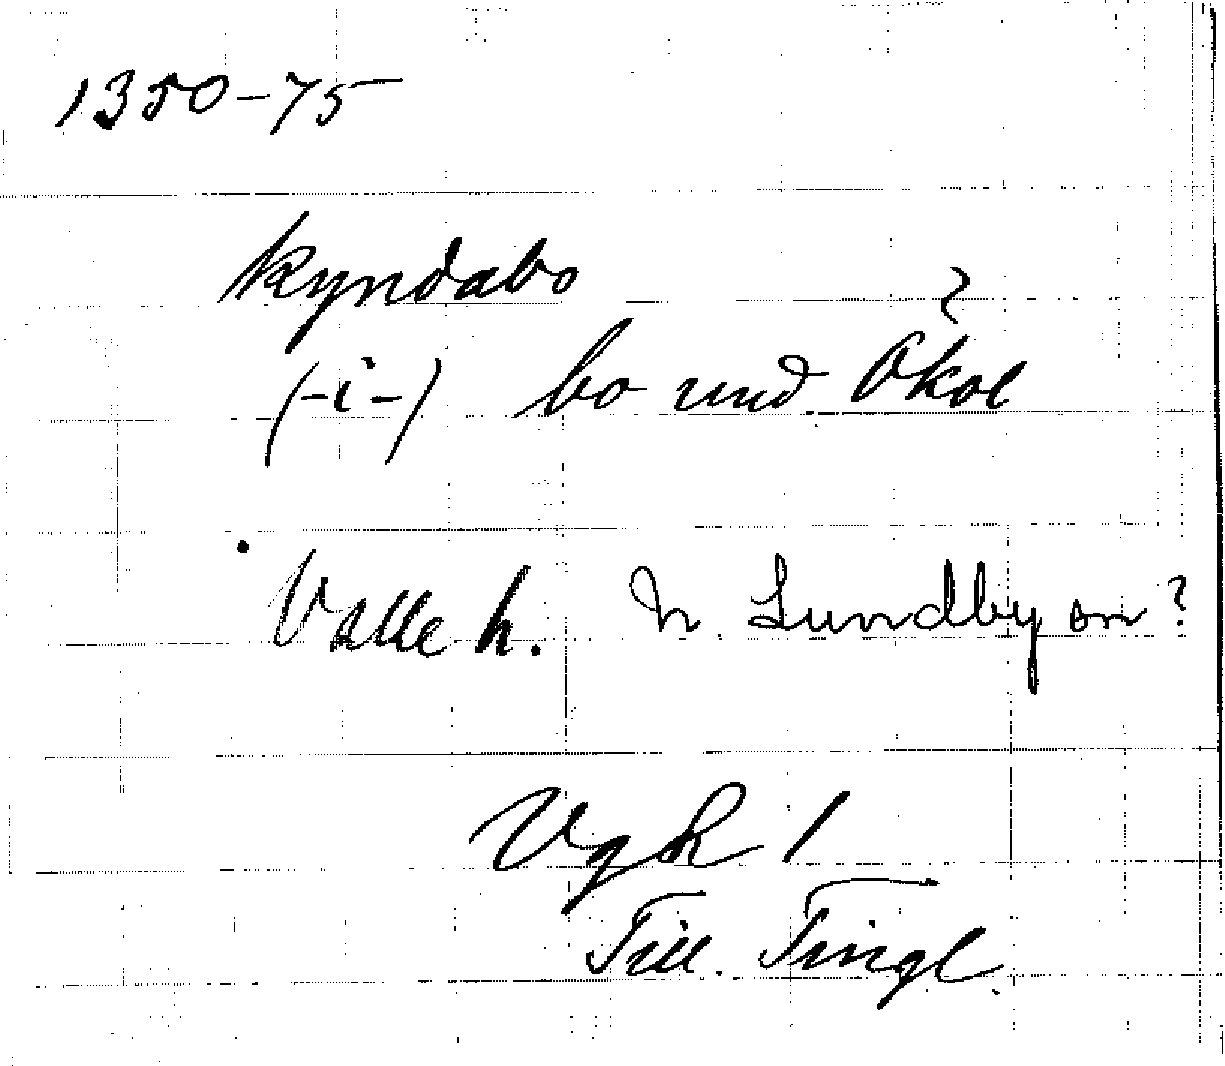 1350-75
kyndabo
?
(-i-) bo und Okol
Valle h. N. Lundby sn?
VgR 1
Till. Tingl.